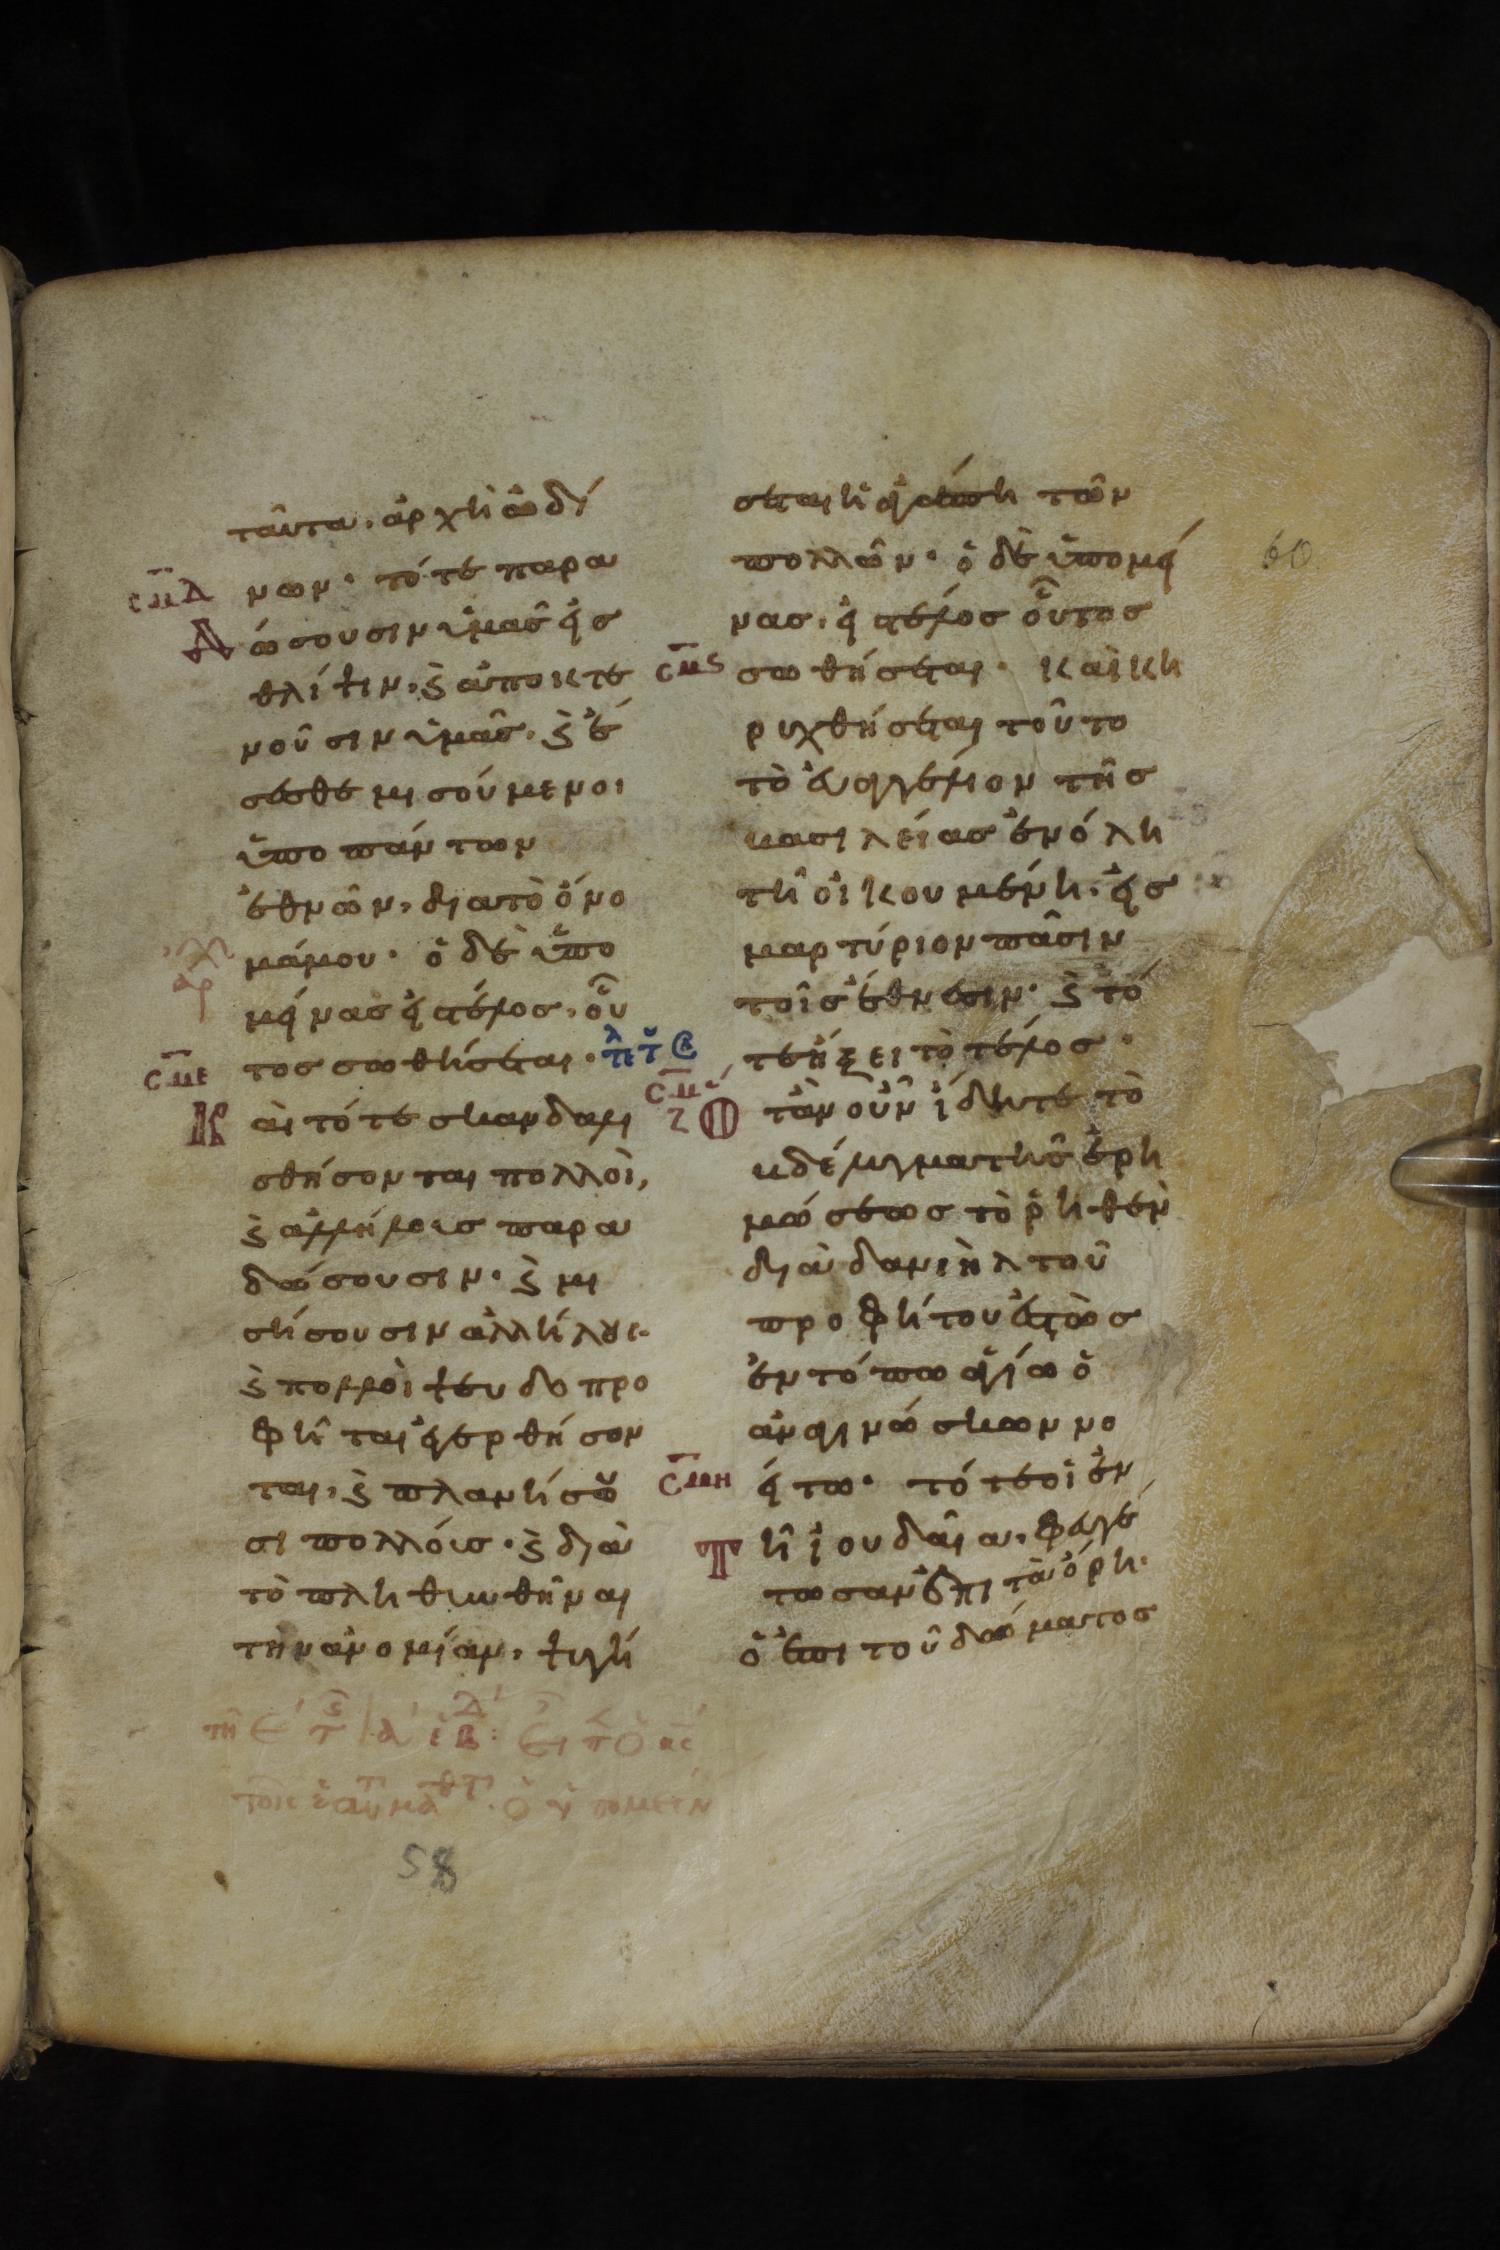 ταῦτα, ἀρχὴ ὠδί
σμδ
νων· τότε παρα
Δώσουσιν ὑμᾶς εἰσ
θλίψιν, ϗ ἀποκτε
νοῦσιν ὑμᾶς, ϗ ἔ
σεσθε μισούμενοι
ὑπο πάντων
ἐθνῶν, διατὸ ὄνο
μάμου· ὁ δὲ ὑπο
αρ
μείνας εἰ τέλος, οὗ
τος σωθήσεται·
σμε
Καὶ τότε σκανδαλι
σθήσονται πολλοὶ,
ϗ ἀλλήλοις παρα
δώσουσιν· ϗ μι
σήσουσιν ἀλλήλους·
ϗ πολλοὶ ψευδοπρο
φῆται ἐγερθήσον
ται, ϗ πλανήσου
σι πολλούς· ϗ διὰ
τὸ πληθυνθῆναι
τὴν ἀνομίαν, ψυγή
σεται ἡ ἀγάπη τῶν
πολλῶν· ὁ δὲ ὑπομεί
νας, εἰ τέλος οὗτος
σμς
σωθήσεται· καὶ κη
ρυχθήσεται τοῦτο
τὸ εὐαγγέλιον τῆς
βασιλείας ἐν ὅλη
τῆ οἰκουμένη, εἰς
μαρτύριον πᾶσιν
τοῖς ἔθνεσιν· ϗ τό
τε ἥξει τὸ τέλος·
σμζ
Ὅταν οὖν ἴδητε τὸ
βδέλυγμα τῆς ἐρη
μώσεως τὸ ῥηθὲν
διὰ δανιὴλ τοῦ
προφήτου ἑστὼς
ἐν τόπω ἁγίω ὁ
ἀναγινώσκων νο
σμη
είτω· τότε οἱ ἐν
Τῆ ἰουδαία, φευγέ
τωσαν ἐπι τὰ ὄρη·
ὁ ἐπι τοῦ δώματος
60
58